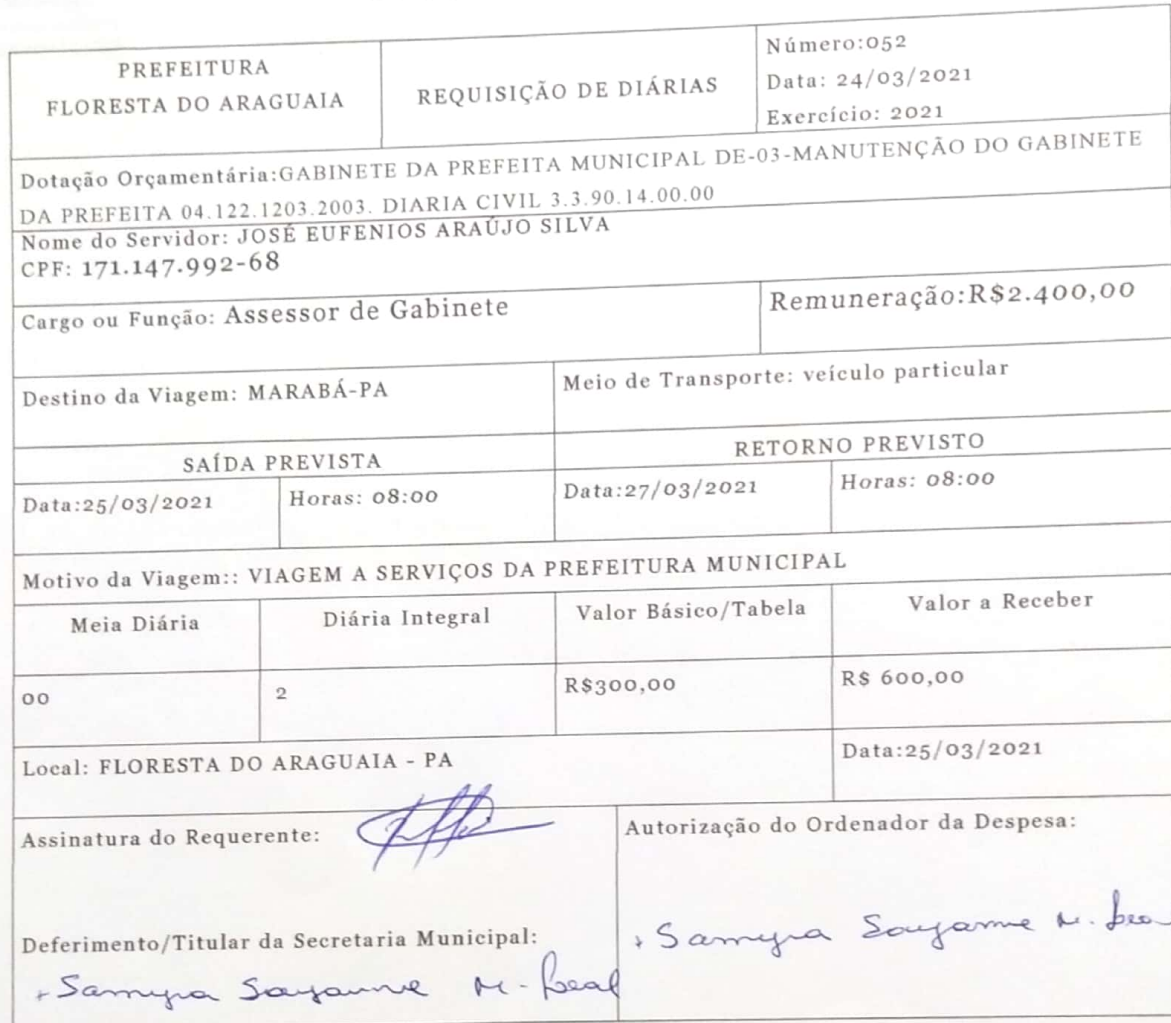 PREFEITURA
FLORESTA DO ARAGUAIA
REQUISIÇÃO DE DIÁRIAS
Número:052
Data: 24/03/2021
Exercício: 2021
Dotação Orçamentária:GABINETE DA PREFEITA MUNICIPAL DE-03-MANUTENÇÃO DO GABINETE
DA PREFEITA 04.122.1203.2003. DIARIA CIVIL 3.3.90.14.00.00
Nome do Servidor: JOSÉ EUFENIOS ARAÚJO SILVA
CPF: 171.147.992-68
Cargo ou Função: Assessor de Gabinete
Remuneração:R$2.400,00
Destino da Viagem: MARABÁ-PA
Meio de Transporte: veículo particular
SAÍDA PREVISTA
RETORNO PREVISTO
Data:25/03/2021
Horas: 08:00
Data:27/03/2021
Horas: 08:00
Motivo da Viagem:: VIAGEM A SERVIÇOS DA PREFEITURA MUNICIPAL
Meia Diária
Diária Integral
Valor Básico/Tabela
Valor a Receber
00
2
R$300,00
R$ 600,00
Local: FLORESTA DO ARAGUAIA - PA
Data:25/03/2021
Assinatura do Requerente:
Autorização do Ordenador da Despesa:
Samyra Sayanne M.
Deferimento/Titular da Secretaria Municipal:
Samyra Sayanne M. Leal